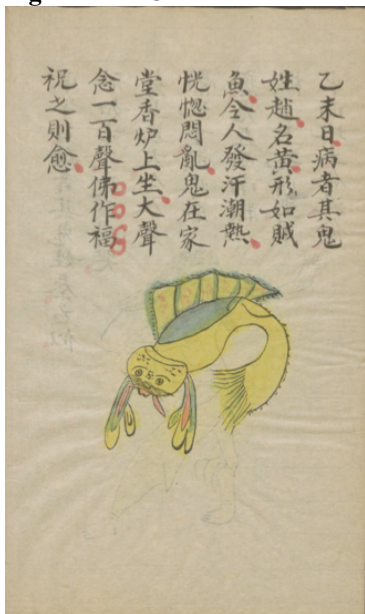 乙未日病者其鬼
姓趙名黄形如賊
魚令人發汗潮熱
恍惚悶亂鬼在家
堂香炉上坐大聲
念一百聲佛作福
祝之則愈